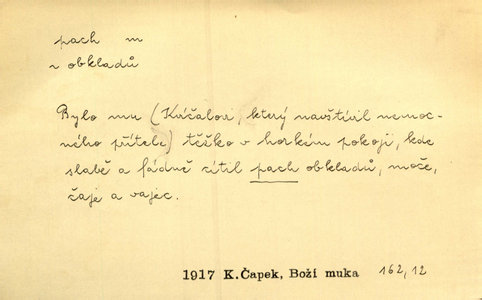 pach m
~ obkladů
Bylo mu (Kvíčalovi, který navštívil nemoc-
ného přítele) těžko v horkém pokoji, kde
slabě a fádně cítil pach obkladů, moče,
čaje a vajec.
1917 K.Čapek, Boží muka 162,12